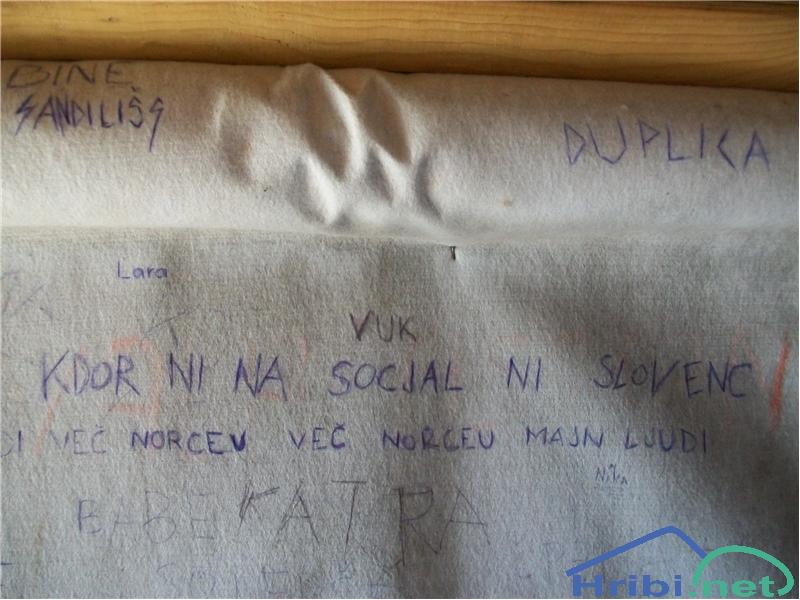 BINE
SANDILIŠS
DUPLICA
Lara
VUK
KDOR NI NA SOCJAL NI SLOVENC
DI VEČ NORCEV VEČ NORCEU MAJN LJUDI
BABE KATRA
Hribi.net